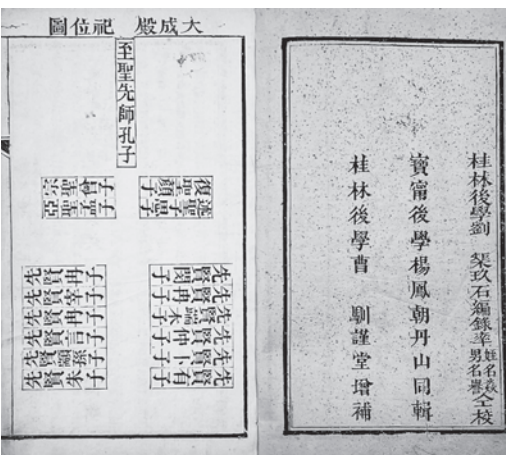 桂林後學劉 榘玖石編錄率姪名焱男名譽仝校
寶甯後學楊鳳朝丹山同輯
桂林後學曹 馴謹堂增補
大成殿 祀位圖
至聖先師孔子
復聖顏子
述聖子思子
宗聖曾子
亞聖孟子
先賢閔子
先賢冉子
先賢端木子
先賢仲子
先賢卜子
先賢有子
先賢冉子
先賢宰子
先賢冉子
先賢言子
先賢顓孫子
先賢朱子